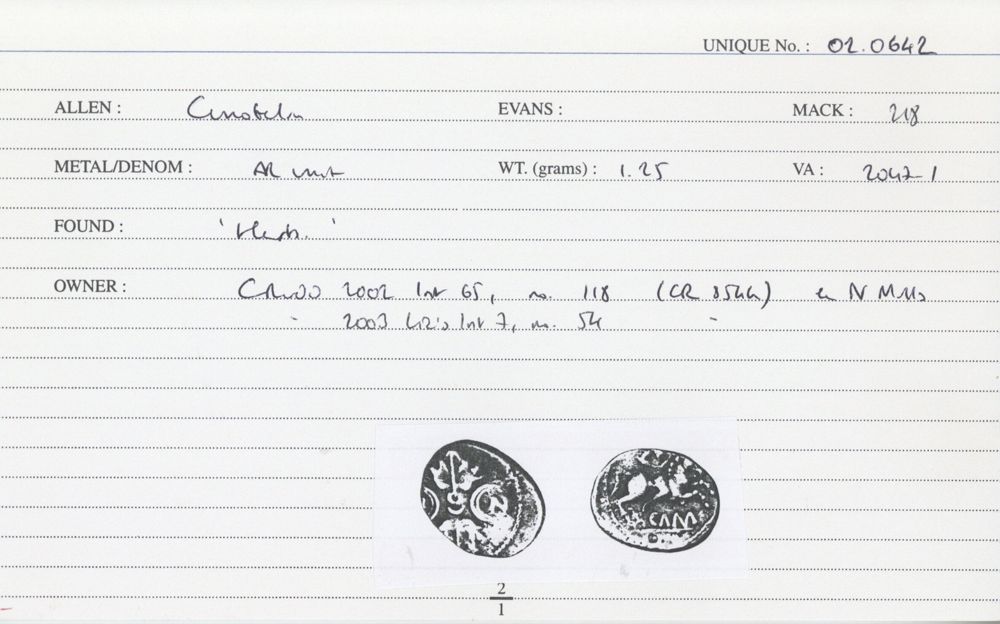 UNIQUE No. : 02.0642
ALLEN : Cunobelin EVANS : MACK : 218
METAL/DENOM : AR unit WT. (grams) : 1.25 VA : 2047-1
FOUND : 'Herts.'
OWNER : 2002 lnt 65, no. 118 (CR 854h) ex N
2003 Liz's lnt 7, no. 54
CAM
2
1